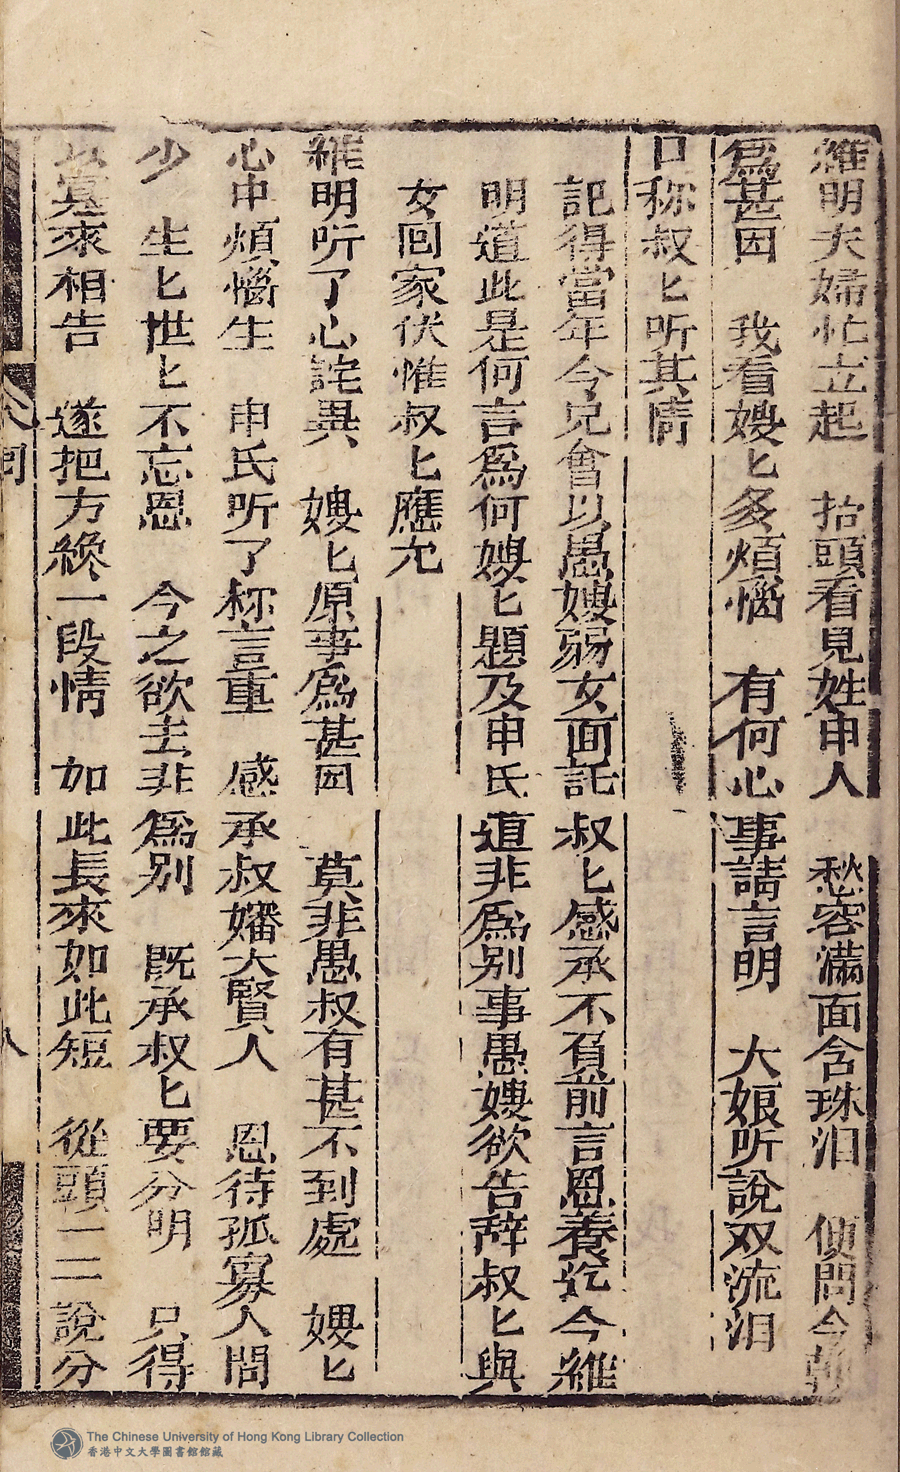 維明夫婦忙立起　抬頭看見姓申人　愁容滿面含珠泪　便問今朝
為甚因　我看嫂匕多煩惱　有何心事請言明　大娘听說双流泪
口称叔匕听其情
記得當年令兄會以愚嫂弱女面託叔匕感承不負前言恩養迄今維
明道此是何言為何嫂匕題及申氏道非為别事愚嫂欲告辞叔匕與
女回家伏惟叔匕應允
維明听了心詫異　嫂匕原事為甚因　莫非愚叔有甚不到處　嫂匕
心中煩惱生　申氏听了称言重　感承叔嬸大賢人　恩待孤寡人間
少　生匕世匕不忘恩　今之欲去非為别　既承叔匕要分明　只得
以寔來相告　遂把方纔一段情　如此長來如此短　從頭一二說分
The Chinese University of Hong Kong Library Collection
香港中文大學圖書館館藏